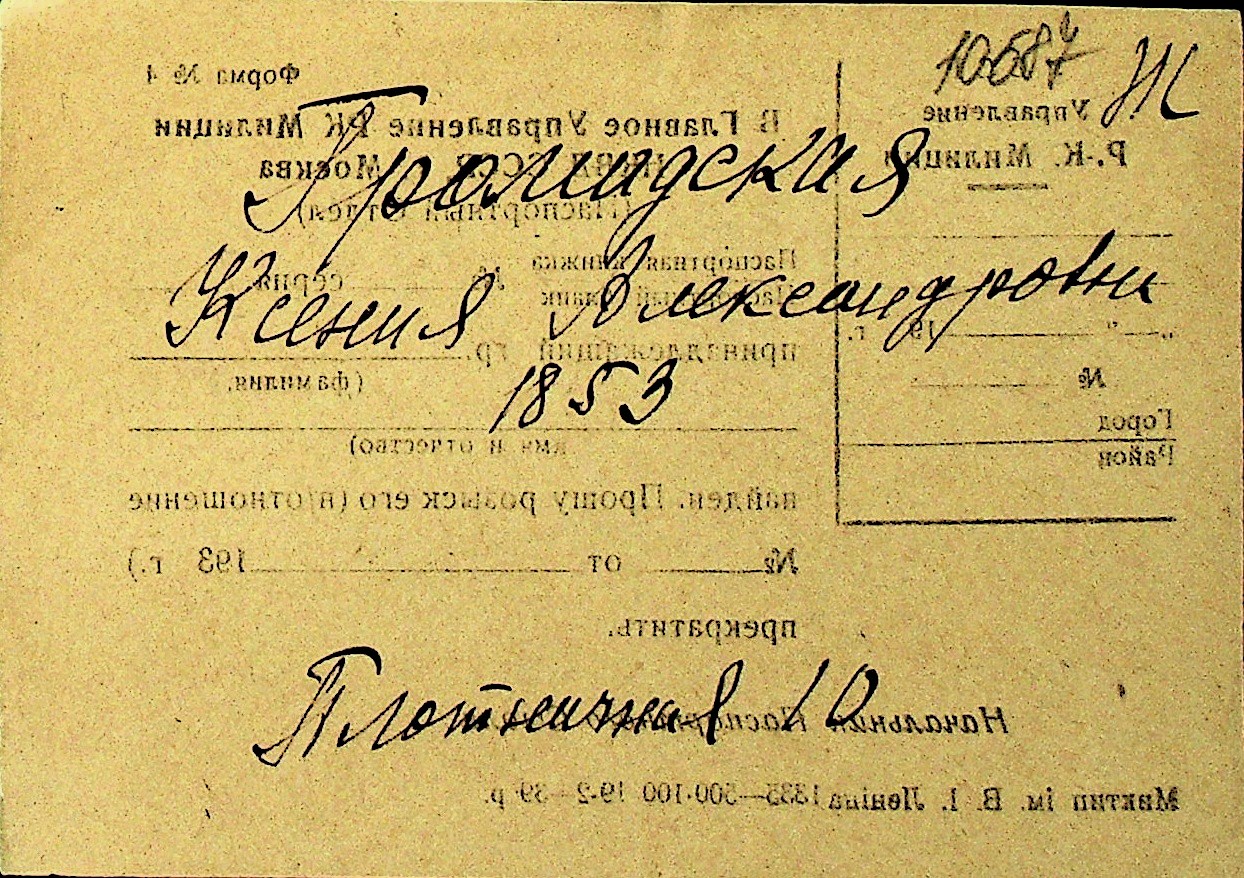 10687 Ж
Громадская
Ксения Александровна
1853
Плотничная 10
Форма № 4
В Главное Управление РК Милиции
НКВД СССР, Москва
(Паспортный Отдел)
Паспортная книжка
Паспортный бланк № серия
принадлежащий гр.
(фамилия,
имя и отчество)
найден. Прошу розыск его (н/отношение
№ от 193 г.)
прекратить.
Начальник Паспортного
Управление
Р.-К. Милиции
„ — “ 19 г.
№
Город
Район
Мактип ім. В. І. Леніна 1335—500·100 19-2—39 р.